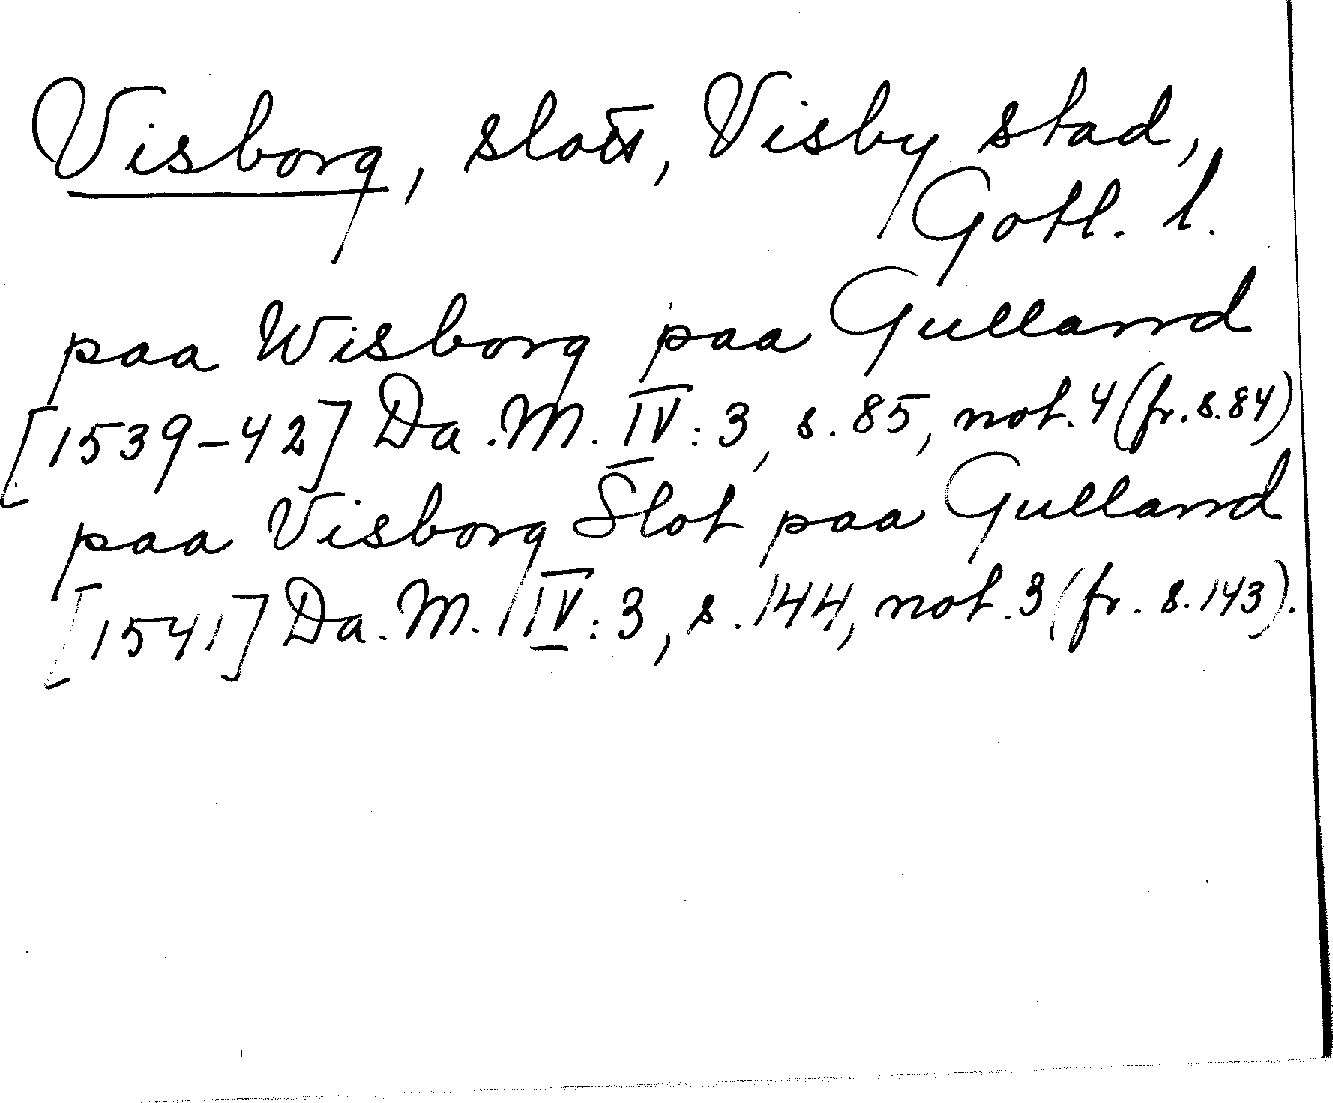 Visborg, slott, Visby stad,
Gotl. l.
paa Wisborg paa Gulland
[1539-42] Da. M. IV: 3, s. 85, not. 4 (fr. s. 84)
paa Visborg Slot paa Gulland
[1541] Da. M. IV: 3, s. 144, not. 3 (fr. s. 143).